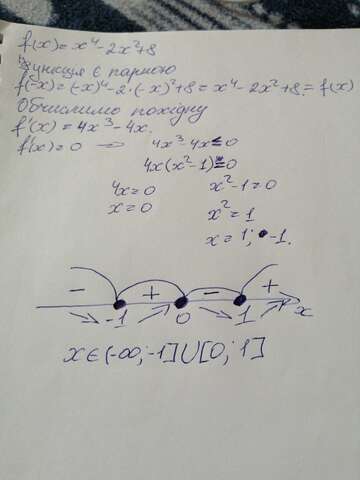 f(x)=x⁴-2x²+8
Функція є парною
f(-x)=(-x)⁴-2·(-x)²+8=x⁴-2x²+8=f(x)
Обчислимо похідну
f'(x)=4x³-4x.
f'(x)=0 => 4x³-4x≤0
4x(x²-1)≤0
4x=0 x²-1=0
x=0 x²=1
x=1; -1.
- + - +
-1 0 1 x
x∈(-∞;-1]∪[0;1]